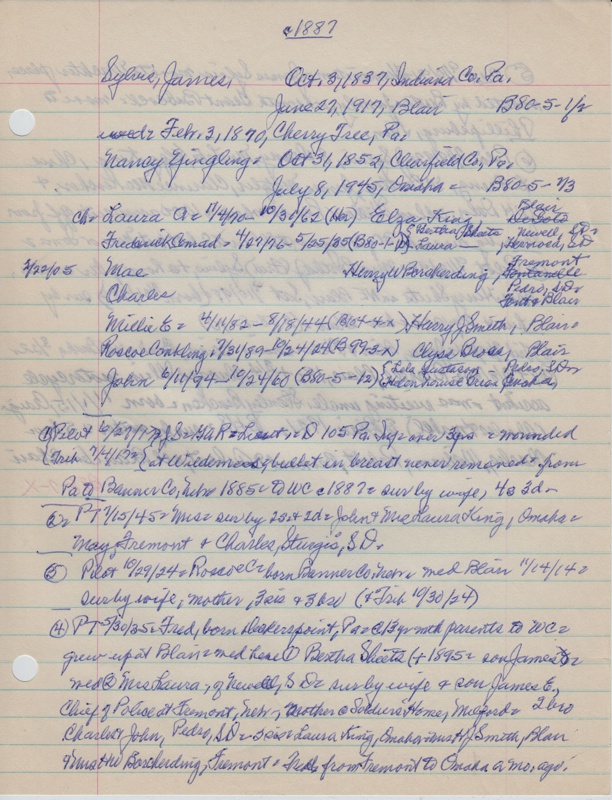 c1887
Sylvis, James, Oct. 3, 1837, Indiana Co, Pa,
June 27, 1917, Blair B80-5-1/2
wed= Feb. 3, 1870, Cherry Tree, Pa=
Nancy Yingling= Oct 31, 1852, Clearfield Co, Pa,
July 8, 1945, Omaha= B80-5-7/3
Ch= Laura A= 11/4/70- 10/30/62 (Na) Elza King, Blair
Frederick Conrad= 4/27/76- 5/25/35 (B80-1- { Bertha Sheets Newell, S.D.
Laura —
3/22/05 Mae Henry W Borcherding, Fremont Fontanelle
Charles Pedro, S.D.= Blair
Willie E= 4/11/82- 8/18/44 (B Harry J Smith, Blair=
Roscoe Conkling, 7/31/89- 10/24/24 (B Blair
John 6/11/94- 10/24/60 (B80-5-12) { Lola Gustason- Pedro, S.D.=
Helen Louise Omaha,
① Pilot 6/27/17= J.S= GAR= Lieut, =D 105 Pa Inf= over 3 yrs= wounded
Trib 7/4/17= { at Wilderness, bullet in breast never removed= from
Pa to Banner Co, Nebr 1885= to WC c1887= sur by wife, 4s 3d=
②= PT 7/15/45= Mrs= sur by 2s+ 2d= John+ Mrs Laura King, Omaha=
May, Fremont + Charles, Sturgis, S.D.
③ Pilot 10/29/24= Roscoe C= born Banner Co. Nebr= med Blair 11/14/14=
sur by wife, mother, 3 sis & 3 bro (+ Trib 10/30/24)
④ PT 5/30/35= Fred, born Pa= c/3 yr with parents to WC=
grew up at Blair= med here ① Bertha Sheets (+ 1895= son James
med ② Mrs Laura, of Newell, S.D= sur by wife + son James E,
Chief of Police at Fremont, Nebr, mother @ Soldiers Home, Milford= 2 bro
Charles & John, Pedro, S.D= 3 sis= Laura King, Omaha= Mrs H J Smith, Blair
& Mrs HW Borcherding, Fremont= Fred from Fremont to Omaha a mo, ago,